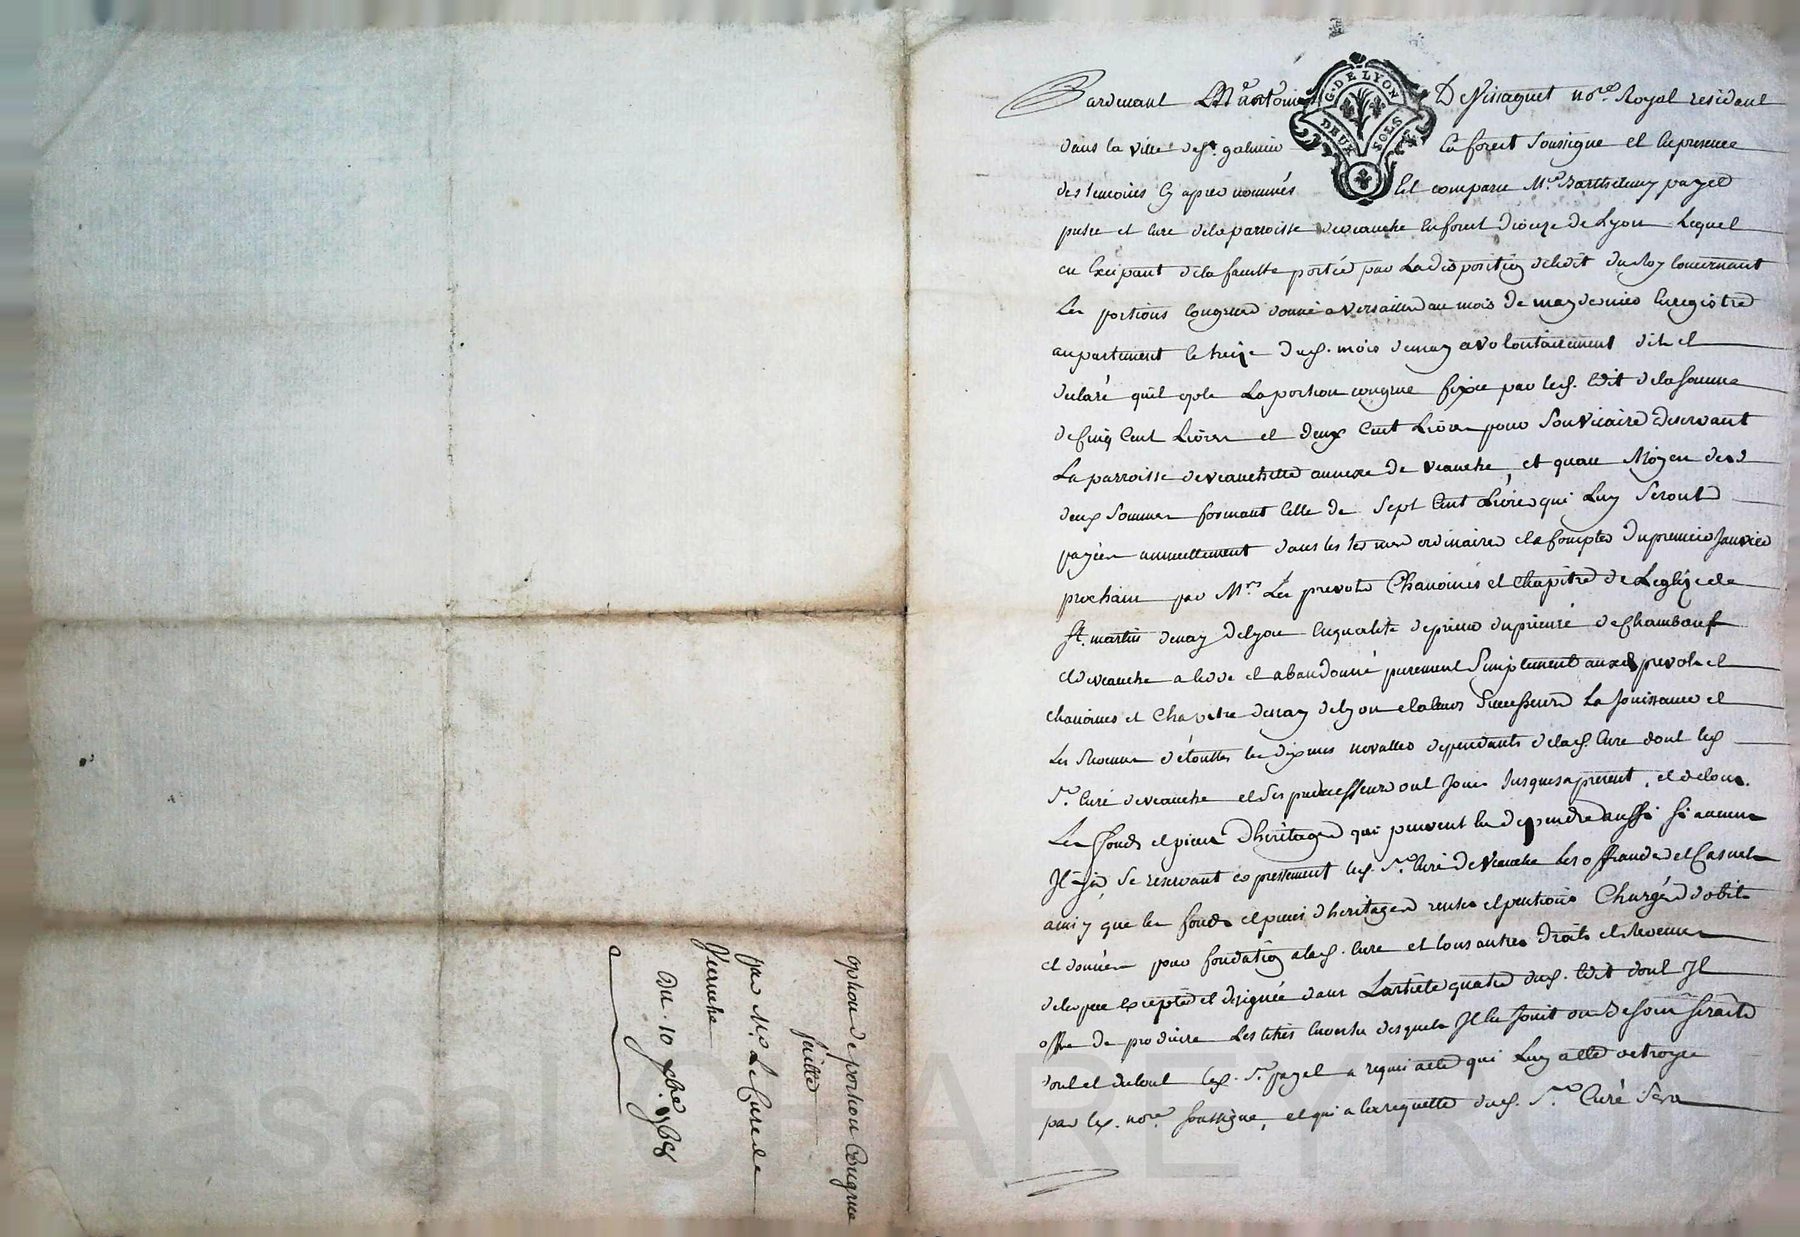 G. DE LYON
DEUX SOLS
Pardevant Me antoine Denis no.re Royal residant
dans la ville de st. galmier en forest soussigné et en presence
des temoins cy apres nommés Est comparu Mre Barthelemy payet
pretre et curé de la parroisse de veauche en forest dioceze de Lyon Lequel
en Excipant de la faculté portée par La disposition de ledit du Roy concernant
Les portions congrues donné a versailles au mois de may dernier Enregistré
au parlement le treize dud. mois de may a volontairement dit et
declaré qu'il opte La portion congrue fixée par led. Edit de la somme
de Cinq Cent Livres et deux Cent Livres pour son vicaire deservant
La parroisse de veauchette annexe de veauche, et qu'au Moyen des d
deux sommes formant Celle de sept Cent Livres qui Luy seront
payées annuellement dans les termes ordinaires et a compter du premier Janvier
prochain par Mrs Les prevots Chanoines et Chapitre de L'eglize de
St. martin denay de lyon en qualité de prieur du prieuré de Chambœuf
et de veauche a cedé et abandonné purement simplement auxd prevots et
chanoines et Chapitre denay de lyon et a leurs successeurs La Jouissance et
Les Revenus de touttes les dixmes novalles dependants de lad. Cure dont led
Sr. Curé de veauche et ses predecesseurs ont Joui Jusques a present, et de tous
Les fonds et pieces d'heritages qui peuvent en dependre aussi si aucuns
Il y a se reservant expressement led. Sr. Curé de Veauche les offrandes et Casuels
ainsy que les fonds et pieces d'heritages rentes et pentions Chargés d'obits
et données pour fondation a lad. Cure et tous autres Droits et Revenus
de lespece exceptés et designée dans L'article quatre dud. Edit dont Il
offre de produire Les titres en vertu desquels Il En Jouit ou Besoin seroit
dont et du tout led. Sr. payet a requis acte qui Luy a été octroyé
par led. nore. soussigné, et qui a la requette dud. Sr. Curé sera
option de portion Congrue
faitte
par Mre Le Curé de
Veauche
Du 10 9bre 1768
Pascal CHAREYRON